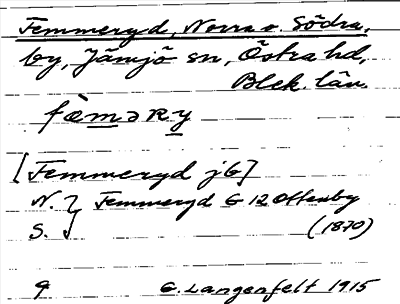 Femmeryd, Norra o. Södra,
by, Jämjö sn, Östra hd,
Blek. län.
fæ̀məry
[Femmeryd jb]
N. } Femmeryd G 12 Ottenby
S. } (1870)
9 G. Langenfelt 1915